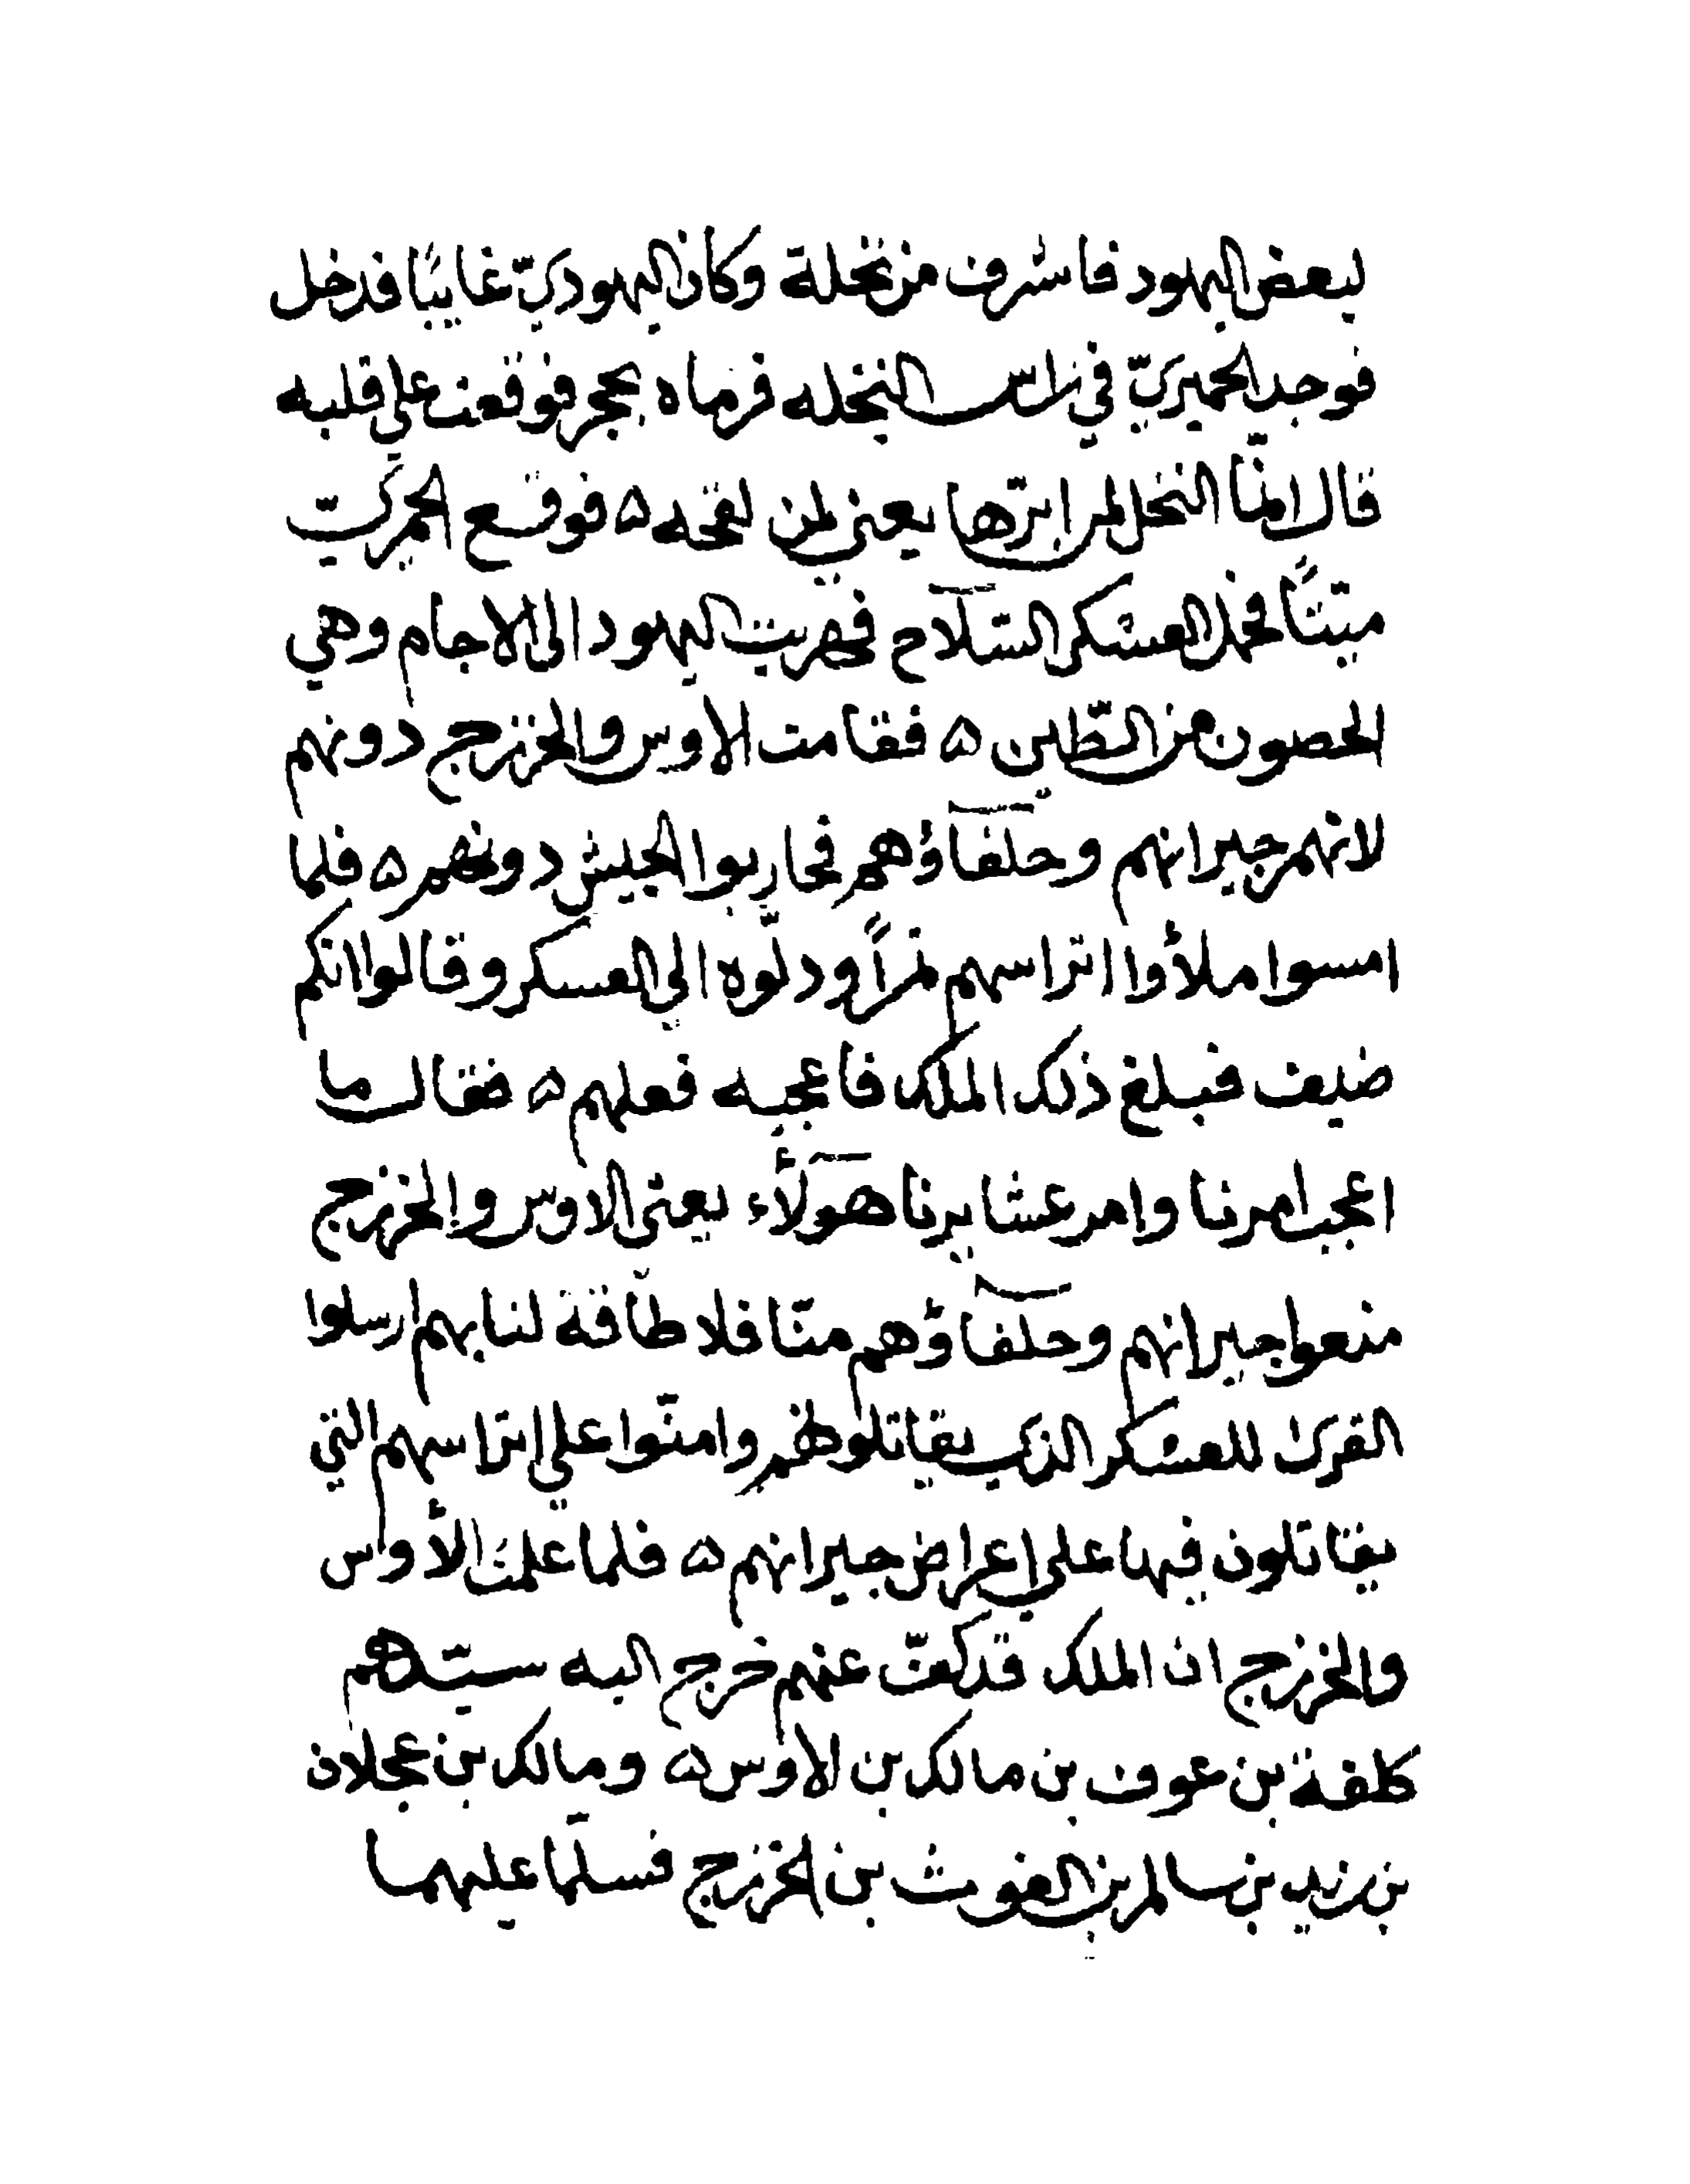 لبعض اليهود فاشرف من نخلة وكان اليهوديّ غايبًا فدخل
فوجد الحميريّ في راس النخله فرماه بحجر فوقعت على قلبه
قال انّما النخل لمن ابّرها يعني لمن لقحه ۵ فوقع الحميريّ
ميتنًا فحمل العسكر السّلاح فهربت اليهود الى الاجام وهي
الحصون من الطّين ۵ فقامت الاوس والخزرج دونهم
لانهم جيرانهم وحلفآؤهم فحاربوا الجيش دونهم ۵ فلما
امسوا ملاؤا اتراسهم تمرًا ودلّوه الي العسكر وقالوا انكم
ضيف فبلغ ذلك الملك فاعجبه فعلهم ۵ فقال ما
اعجب امرنا وامر عشايرنا هَوَلآُء يعني الاوس والخزرج
منعوا جيرانهم وحلفآؤهم منّا فلا طاقة لنا بهم ارسلوا
القرى للعسكر الذي يقاتلونهم وامنّوا علي اتراسهم التي
يقاتلون فيها على اعراض جيرانهم ۵ فلما علمت الأوس
والخزرج ان الملك قد كفّ عنهم خرج اليه سيّدهم
كلفة بن عوف بن مالك بن الاوس ۵ ومالك بن عجلان
بن زيد بن سالم بن الغوث بن الخزرج فسلّما عليهما